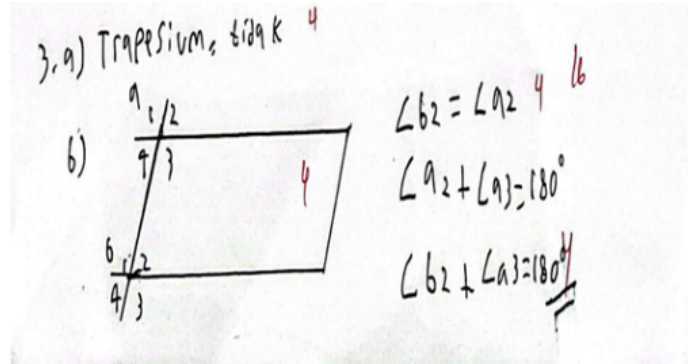 3. a) Trapesium, tidak 4
b)
a 1 2
4 3
4
b 1 2
4 3
∠b2 = ∠a2 4 16
∠a2 + ∠a3 = 180°
∠b2 + ∠a3 = 180° 4